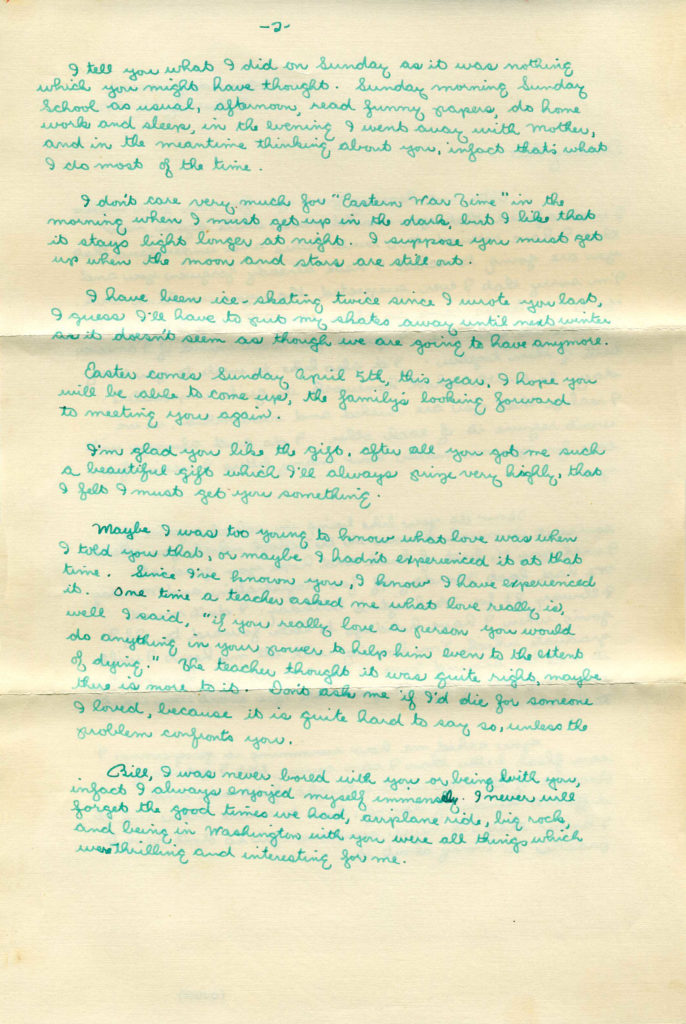 -2-
I tell you what I did on Sunday as it was nothing
which you might have thought. Sunday morning Sunday
School as usual, afternoon, read funny papers, do home
work and sleep, in the evening I went away with Mother,
and in the meantime thinking about you, infact that's what
I do most of the time.
I don't care very much for "Eastern War Time" in the
morning when I must get up in the dark, but I like that
it stays light longer at night. I suppose you must get
up when the moon and stars are still out.
I have been ice-skating twice since I wrote you last,
I guess I'll have to put my skates away until next winter
as it doesn't seem as though we are going to have anymore.
Easter comes Sunday April 5th, this year, I hope you
will be able to come up, the family's looking forward
to meeting you again.
I'm glad you like the gift, after all you got me such
a beautiful gift which I'll always prize very highly, that
I felt I must get you something.
Maybe I was too young to know what love was when
I told you that, or maybe I hadn't experienced it at that
time. Since I've known you, I know I have experienced
it. One time a teacher asked me what love really is,
well I said, "if you really love a person you would
do anything in your power to help him even to the extent
of dying." The teacher thought it was quite right, maybe
there is more to it. Don't ask me if I'd die for someone
I loved, because it is quite hard to say so, unless the
problem confronts you.
Bill, I was never bored with you or being with you,
infact I always enjoyed myself immensely. I never will
forget the good times we had, airplane ride, big rock,
and being in Washington with you were all things which
were thrilling and interesting for me.